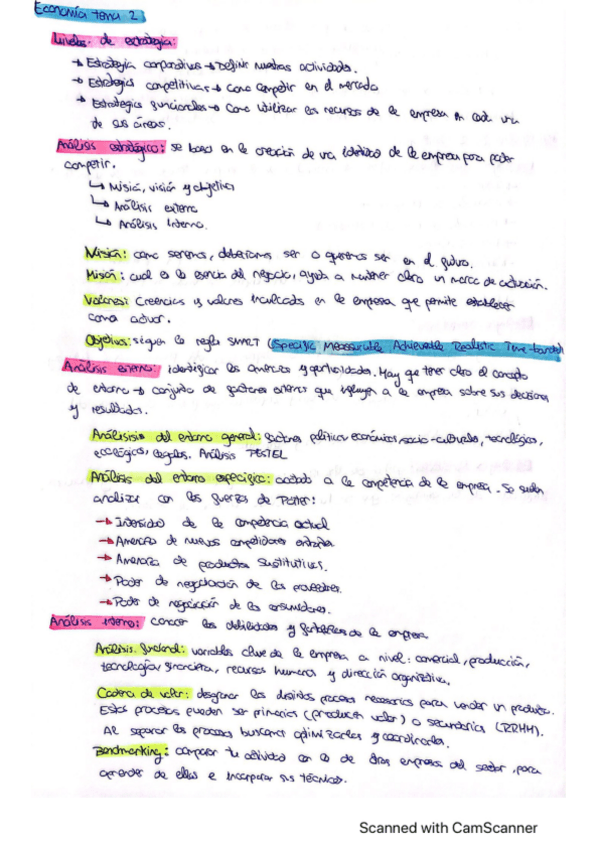 Economía tema 2
Niveles de estrategia:
→ Estrategia corporativa → Definir nuestras actividades.
→ Estrategia competitiva → Como competir en el mercado
→ Estrategias funcionales → Como utilizar los recursos de la empresa en cada una
de sus áreas.
Análisis estratégico: se basa en la creación de una identidad de la empresa para poder
competir.
↳ Misión, visión y objetivos
↳ Análisis externo
↳ Análisis Interno.
como seremos, deberíamos ser o queremos ser en el futuro.
Misión: cual es la esencia del negocio, ayuda a mantener claro un marco de actuación.
Valores: Creencias y valores inculcados en la empresa que permite establecer
como actuar.
Objetivos: siguen la regla SMART (Specific Measurable Achievable Realistic Time-bounded)
Análisis externo: identificar las amenazas y oportunidades. Hay que tener claro el concepto
de entorno → conjunto de factores externos que influyen a la empresa sobre sus decisiones
y resultados.
Análisis del entorno general: factores políticos, económicos, socio-culturales, tecnológicos,
ecológicos, legales. Análisis PESTEL
Análisis del entorno específico: a la competencia de la empresa. Se suele
analizar con las fuerzas de Porter:
→ Intensidad de la competencia actual
→ Amenaza de nuevos competidores
→ Amenaza de productos sustitutivos.
→ Poder de negociación de los proveedores.
→ Poder de negociación de los consumidores.
Análisis interno: conocer las debilidades y fortalezas de la empresa.
Análisis funcional: variables clave de la empresa a nivel: comercial, producción,
tecnología, financiera, recursos humanos y dirección organizativa.
Cadena de valor: desgranar los distintos procesos necesarios para vender un producto.
Estos procesos pueden ser primarios (producen valor) o secundarios (RRHH).
Al separar los procesos buscamos optimizarlos y coordinarlos.
Benchmarking: comparar tu actividad con la de otras empresas del sector, para
aprender de ellas e incorporar sus técnicas.
Scanned with CamScanner